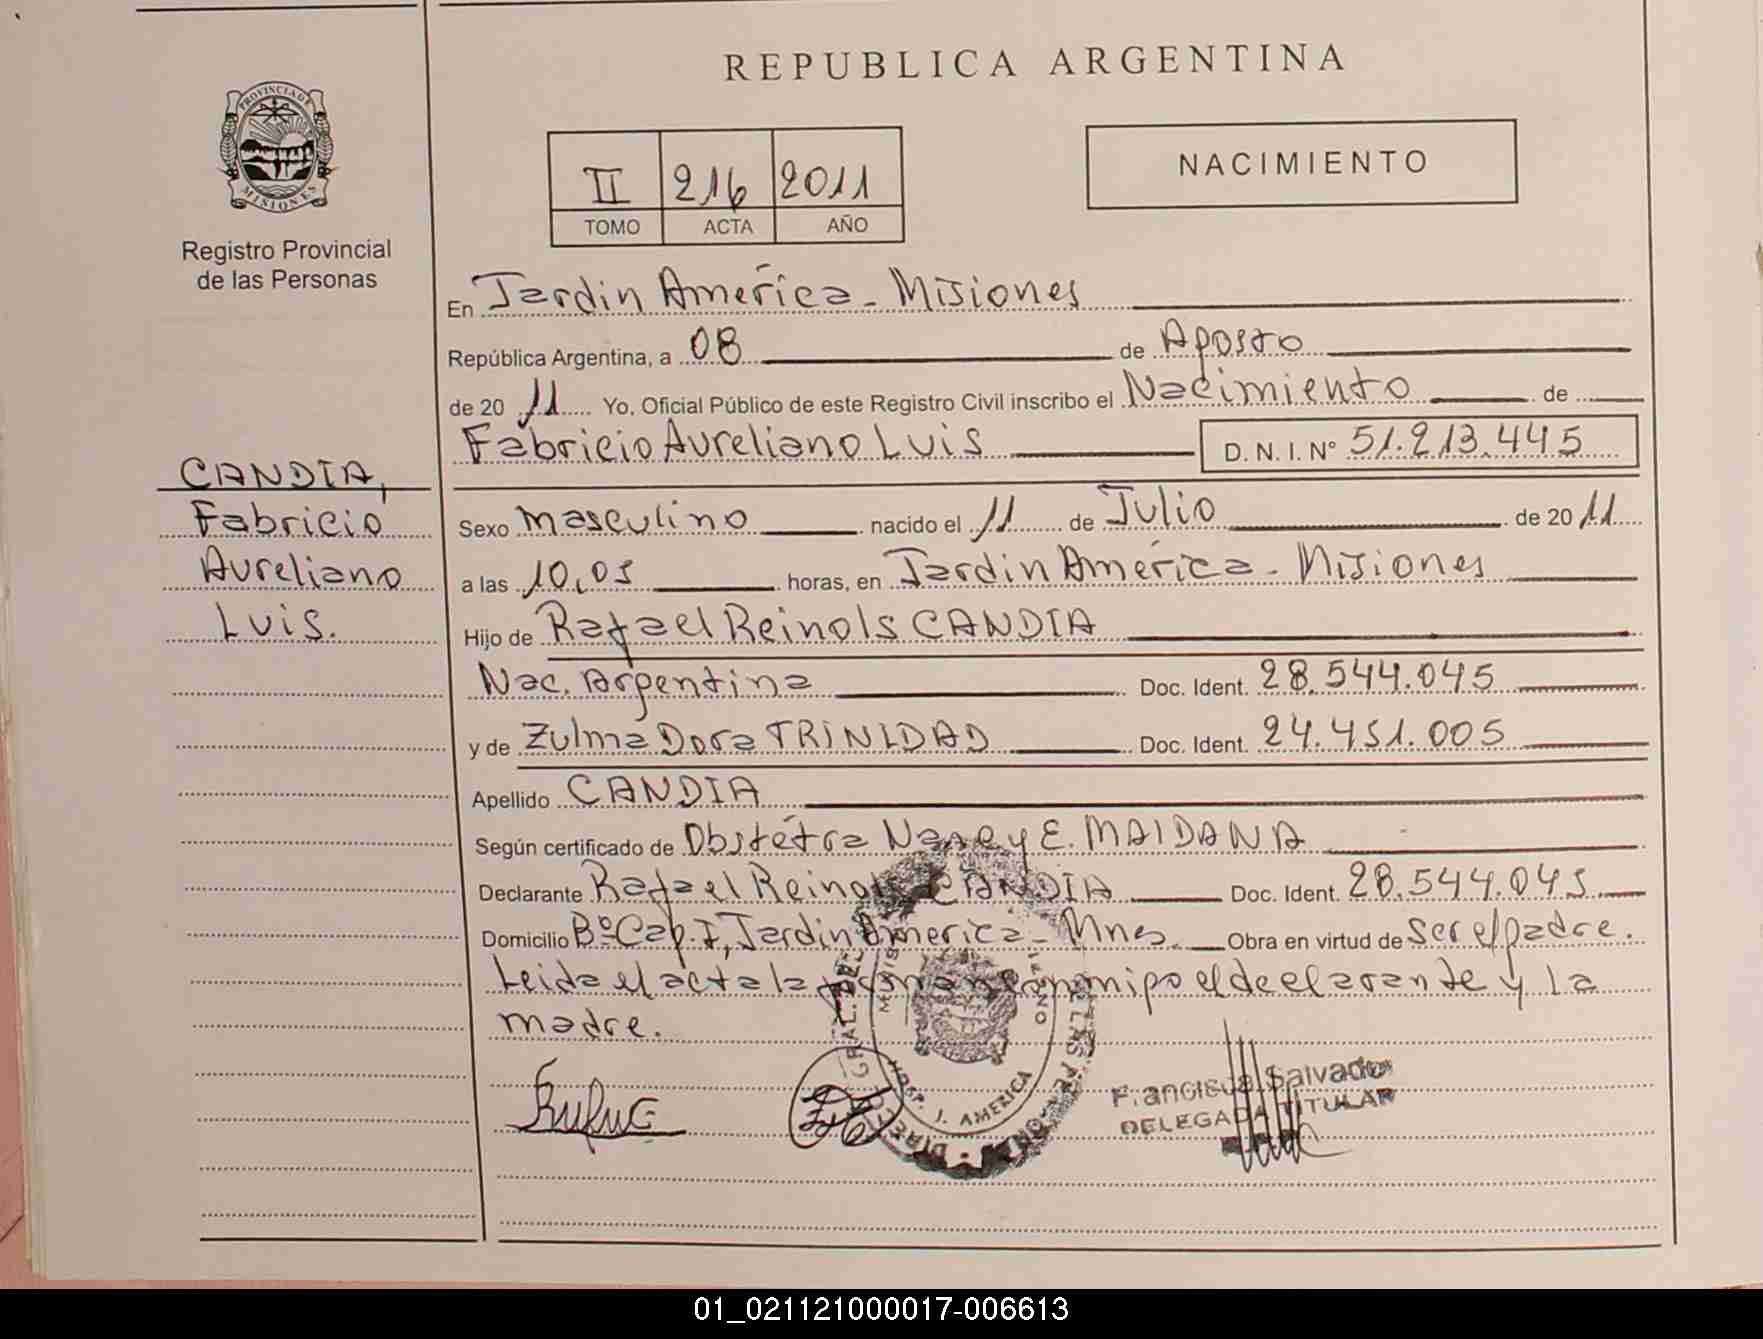 REPUBLICA ARGENTINA
PROVINCIA DE
MISIONES
Registro Provincial
de las Personas
II 216 2011
TOMO ACTA AÑO
NACIMIENTO
En Jardin América - Misiones
República Argentina, a 08 de Agosto
de 20 11 Yo, Oficial Público de este Registro Civil inscribo el Nacimiento de
Fabricio Aureliano Luis D. N. I. Nº 51.213.445
CANDIA,
Fabricio
Aureliano
Luis.
Sexo masculino nacido el 11 de Julio de 20 11
a las 10,05 horas, en Jardin América - Misiones
Hijo de Rafael Reinols CANDIA
Nac. Argentina Doc. Ident. 28.544.045
y de Zulma Dora TRINIDAD Doc. Ident. 24.451.005
Apellido CANDIA
Según certificado de Obstétra Nancy E. MAIDANA
Declarante Rafael Reinols CANDIA Doc. Ident. 28.544.045
Domicilio Bº Cap. I, Jardin America - Mnes. Obra en virtud de ser el padre.
Leida el acta la firman conmigo el declarante y la
madre.
HOSP. J. AMERICA
Francisca Salvador
DELEGADA TITULAR
01_021121000017-006613